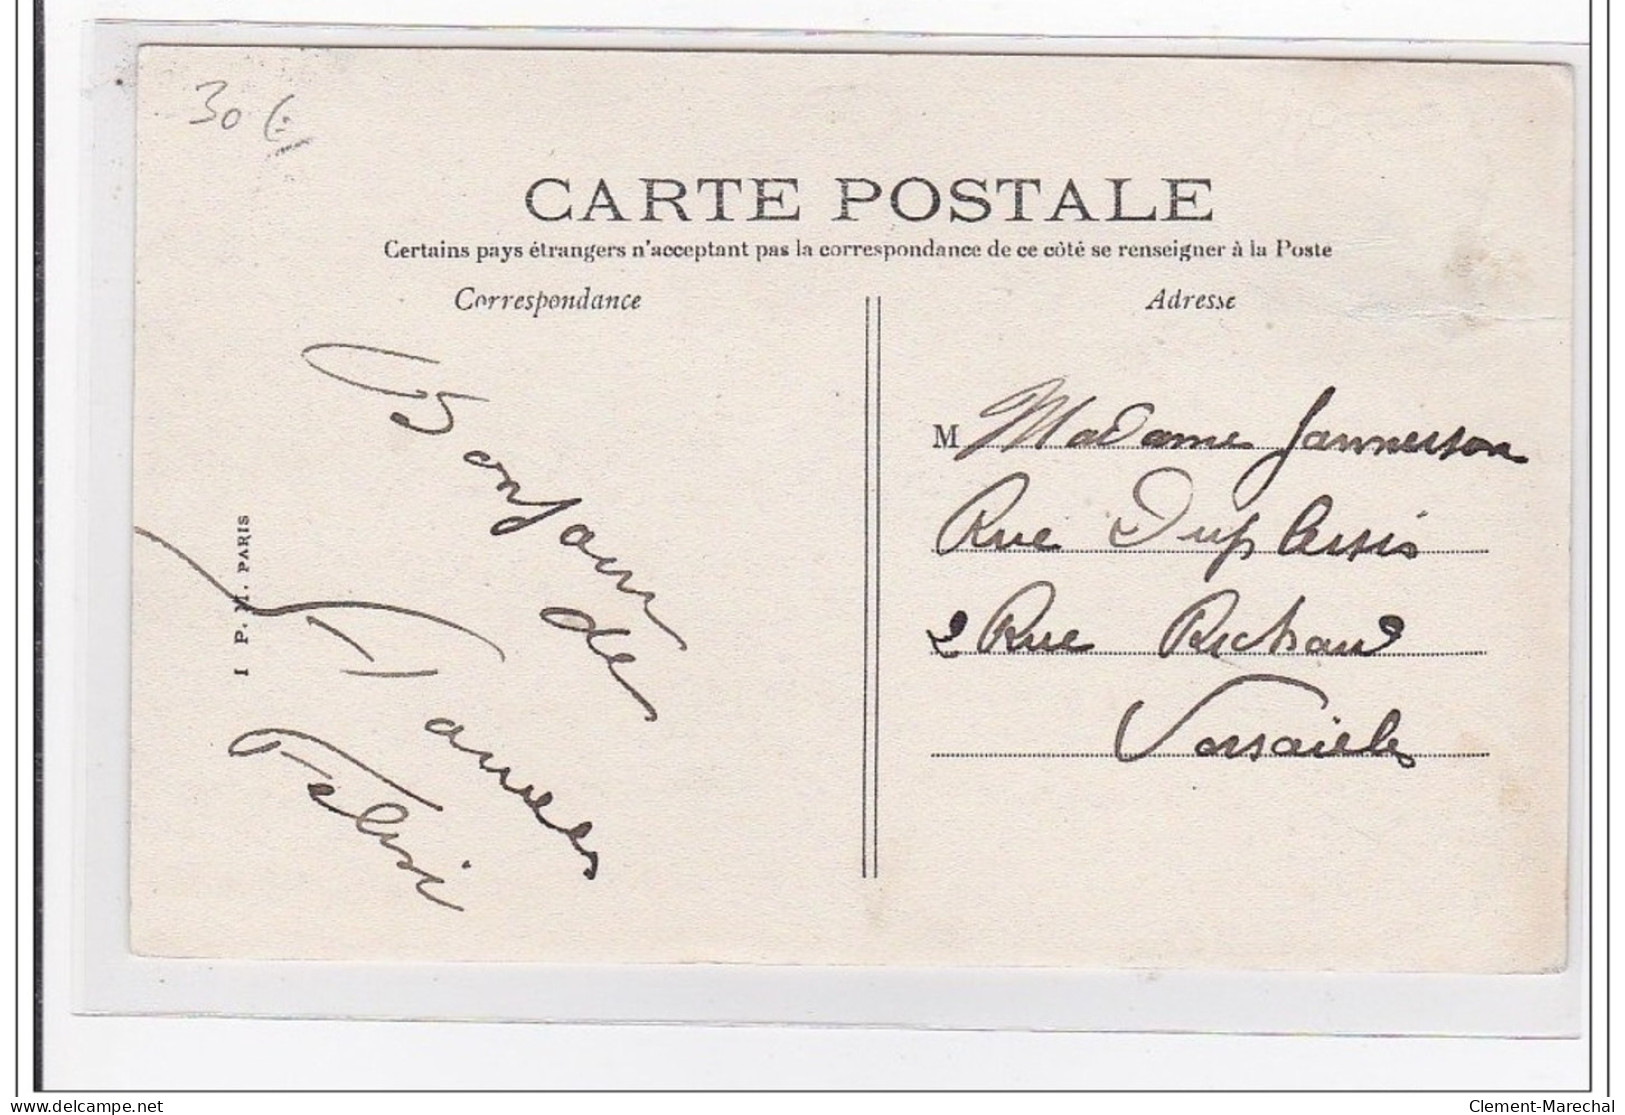 30 €
CARTE POSTALE
Certains pays étrangers n'acceptant pas la correspondance de ce côté se renseigner à la Poste
Correspondance
Bonjour
de
Tanuës
I P. M. PARIS
Adresse
M Madame Jannerson
Rue Duplessis
2 Rue Richaud
Versailles
www.delcampe.net
Clement-Marechal